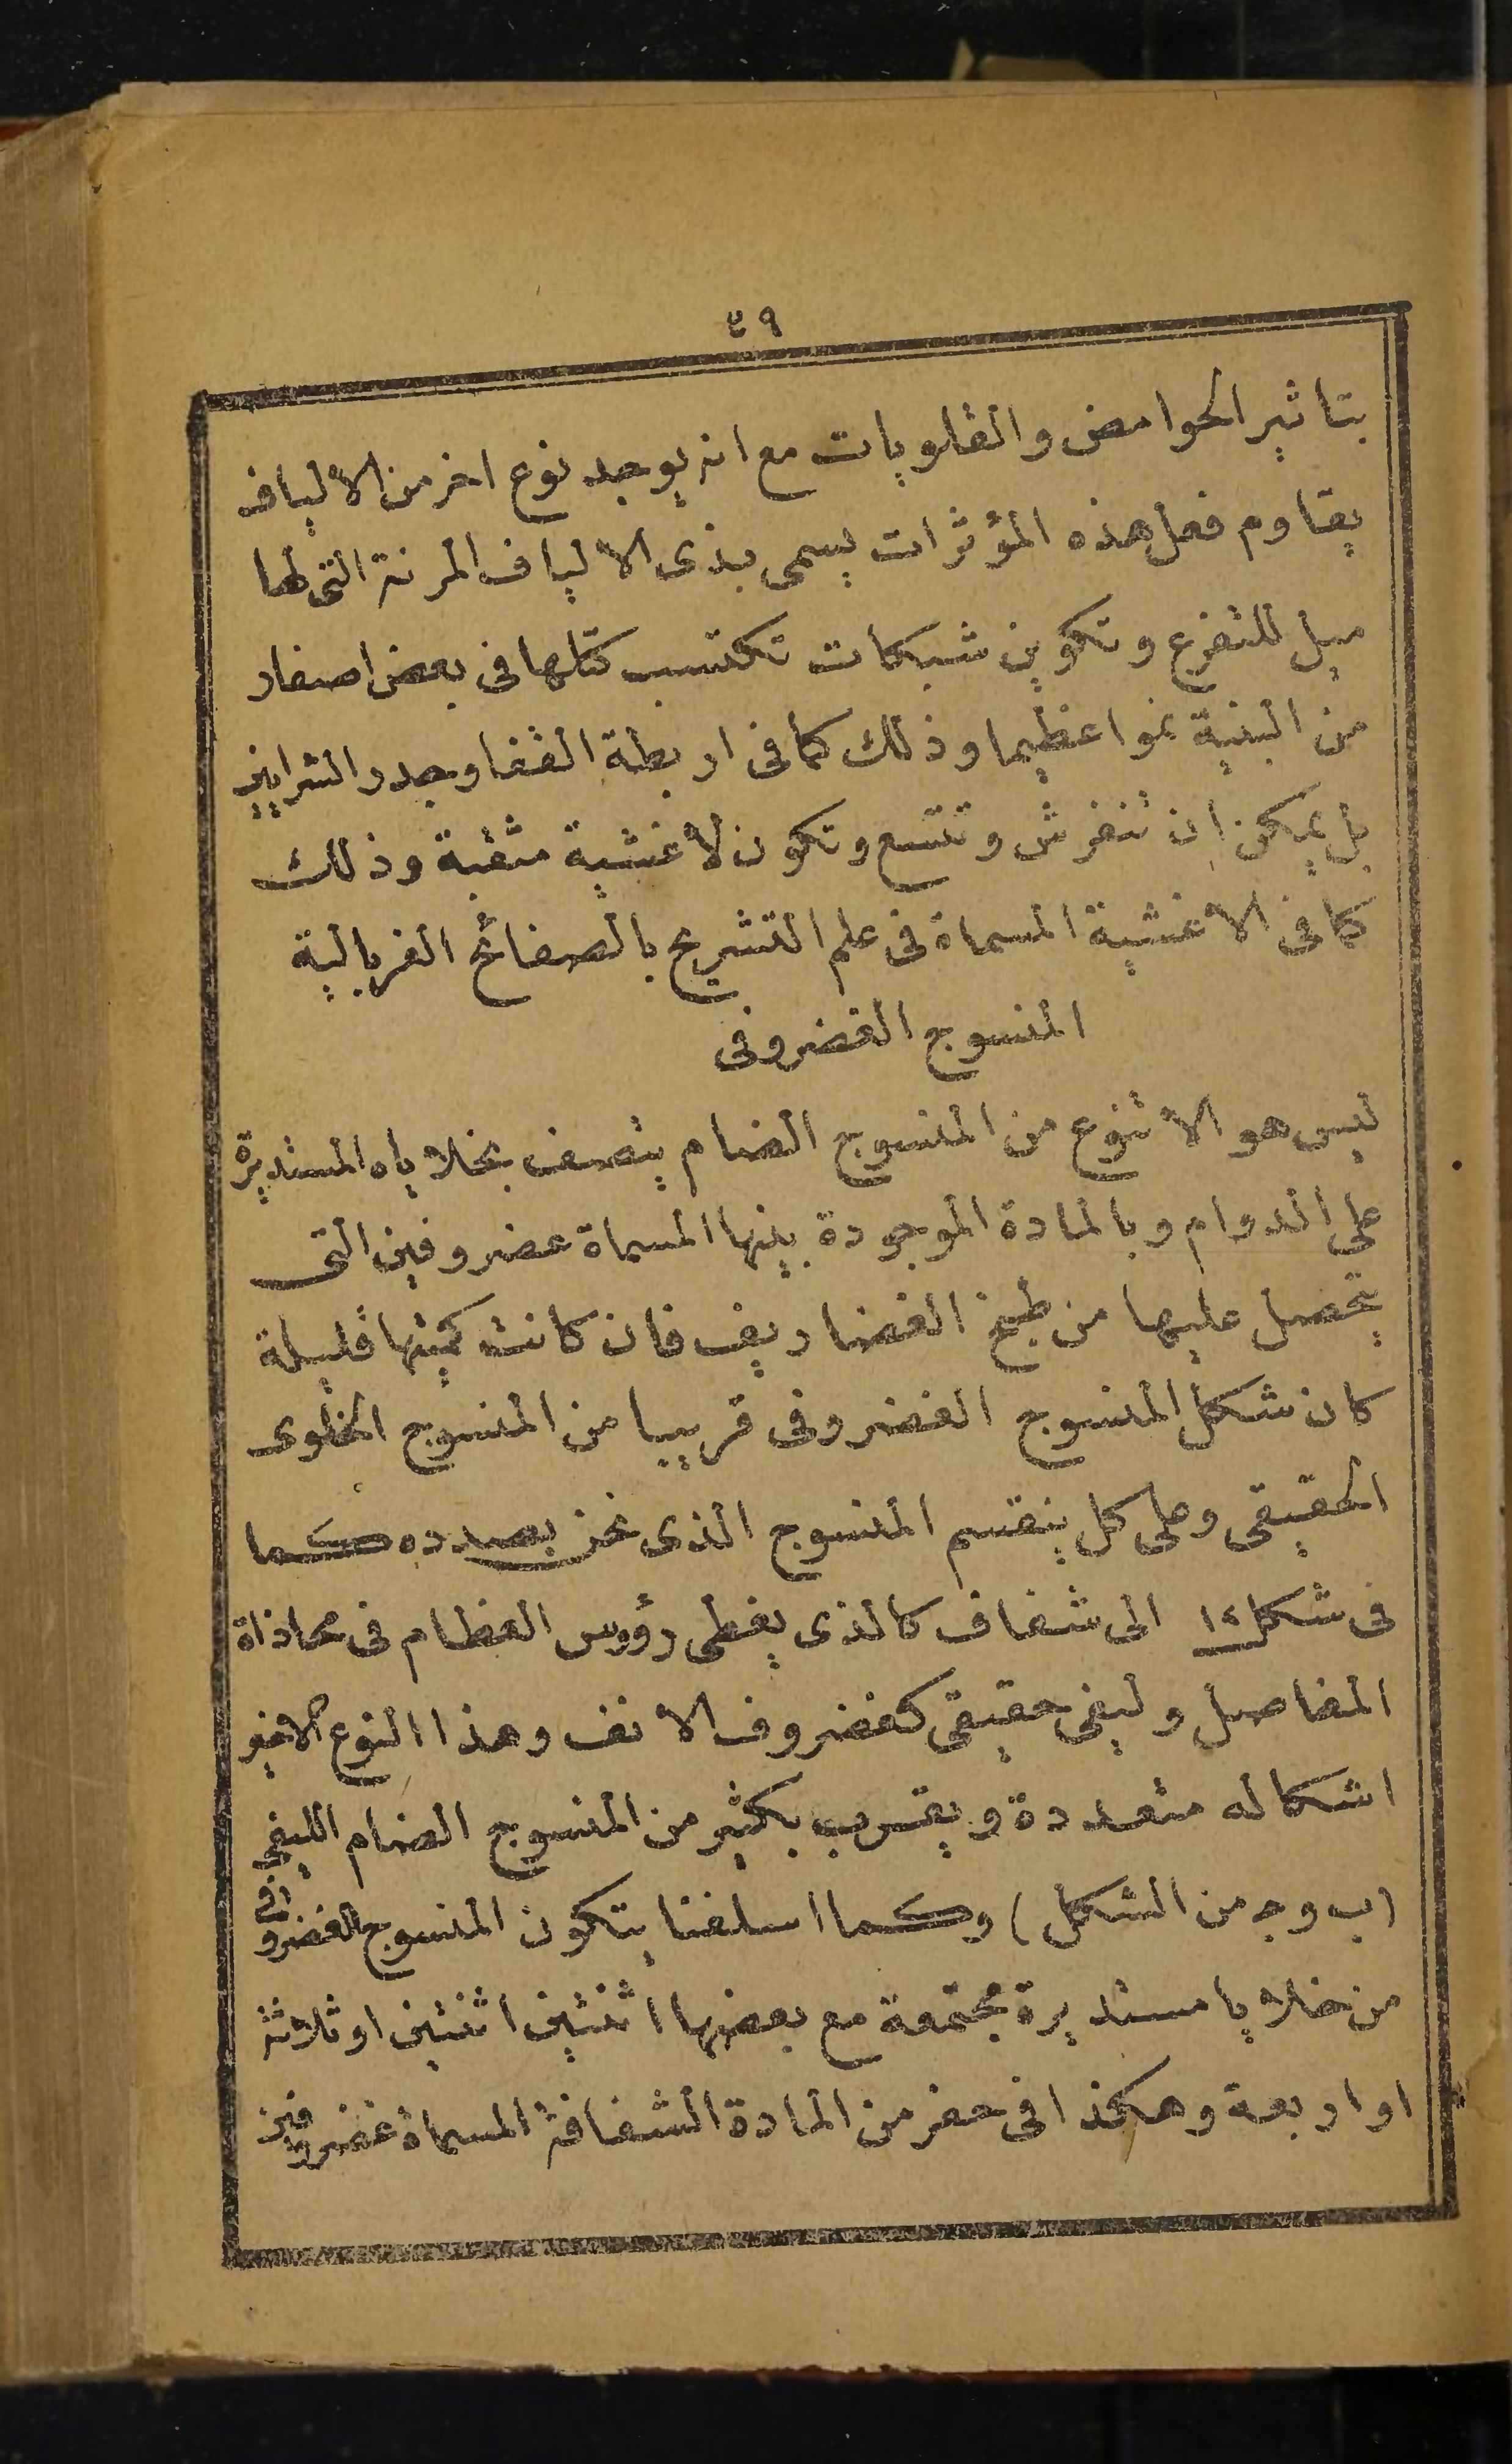 ٤٩
بتاثير الحوامض والقلويات مع انه يوجد نوع اخر من الالياف
يقاوم فعل هذه المؤثرات يسمى بذى الالياف المرنة التى لها
ميل للتفرع وتكوين شبكات تكتسب كتلها فى بعض اصفاد
من البنية نموا عظيما وذلك كما فى اربطة القفا وجدر الشرايين
بل يمكن ان تنفرش وتتسع وتكون لاغشية مثقبة وذلك
كما فى الاغشية المسماة فى علم التشريح بالصفائح الغربالية
المنسوج الغضروفى
ليس هو الا تنوع من المنسوج الضام يتصف بخلاياه المستديرة
على الدوام وبالمادة الموجودة بينها المسماة عضروفين التى
يتحصل عليها من طبخ الغضاريف فان كانت كميتها قليلة
كان شكل المنسوج الغضروفى قريبا من المنسوج الخلوى
الحقيقى وعلى كل ينقسم المنسوج الذى نحن بصدده كما
فى شكل ١٤ الى شفاف كالذى يغطى رؤوس العظام فى محاذاة
المفاصل وليفى حقيقى كغضروف الانف وهذا النوع الاخير
اشكاله متعددة ويقرب بكثير من المنسوج الضام الليفى
(ب وجـ من الشكل) وكما اسلفنا يتكون المنسوج الغضروفى
من خلايا مستديرة مجتمعة مع بعضها اثنتين اثنتين او ثلاثة
او اربعة وهكذا فى حفر من المادة الشفافة المسماة غضروفين